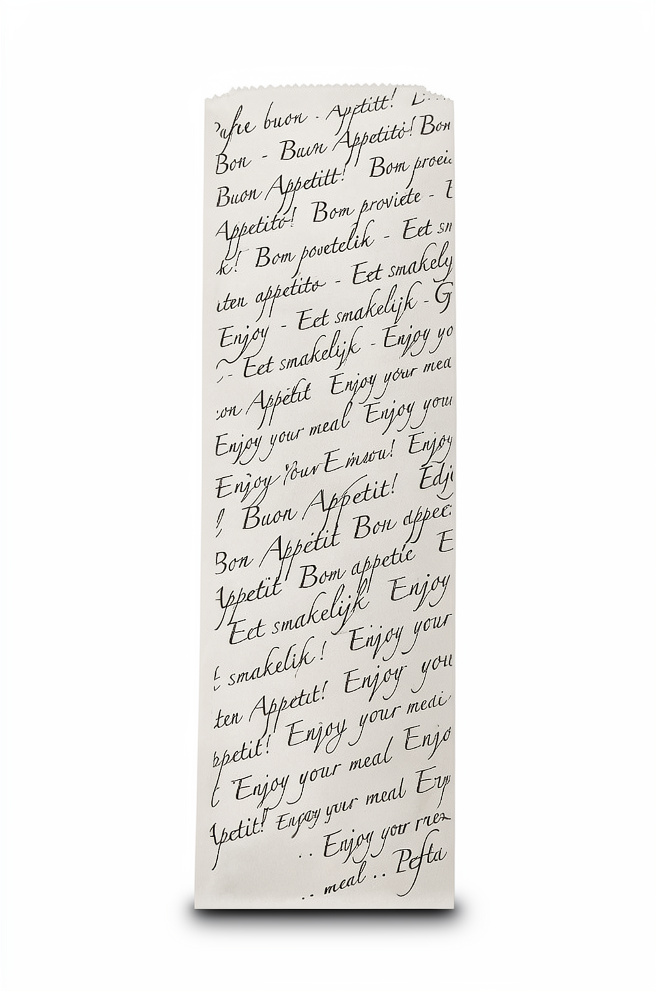 buon . Appetitt!
Bon - Buun Appetito! Bon
Buon Appetitt! Bom proei
Appetito! Bom proviete -
k! Bom povetelik - Eet sm
ten appetito - Eet smakely
Enjoy - Eet smakelijk - G
- Eet smakelijk - Enjoy yo
on Appetit Enjoy your mea
Enjoy your meal Enjoy your
Enjoy Your Enjoy
! Buon Appetit! Edj
Bon Appetit Bon appec
Appetit Bom appetic E
Eet smakelijk! Enjoy
t smakelik! Enjoy your
ten Appetit! Enjoy you
ppetit! Enjoy your medi
t Enjoy your meal Enjo
Apetit! Enjoy your meal
.. Enjoy your
.. meal .. Pefta